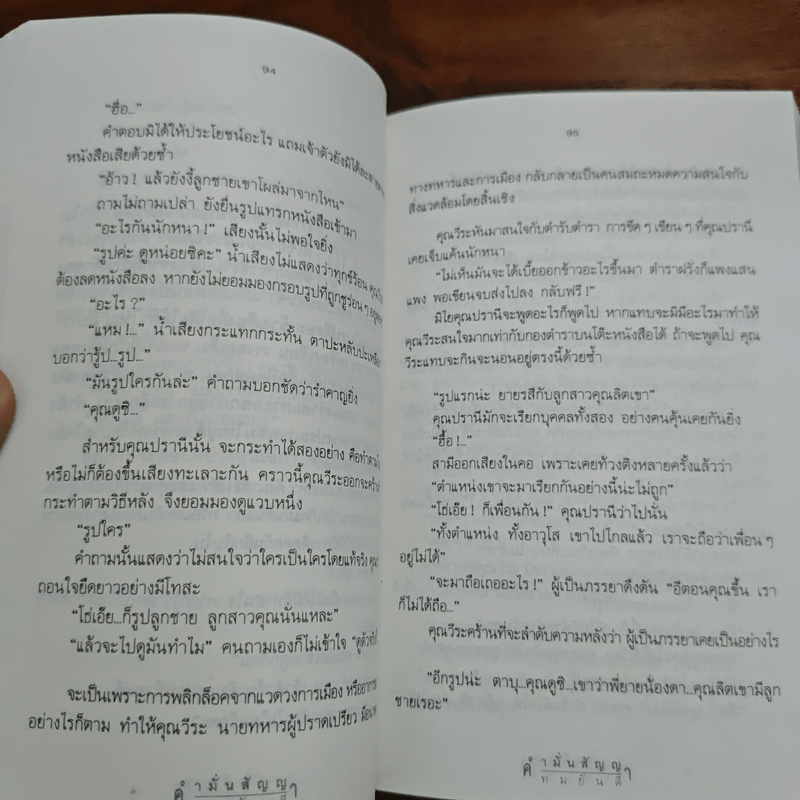 94
“ฮื่อ...”
คำตอบมิได้ให้ประโยชน์อะไร แถมเจ้าตัวยังมิได้
หนังสือเสียด้วยซ้ำ
“อ้าว ! แล้วยังงี้ลูกชายเขาโผล่มาจากไหน”
ถามไม่ถามเปล่า ยังยื่นรูปแทรกหนังสือเข้ามา
“อะไรกันนักหนา !” เสียงนั้นไม่พอใจยิ่ง
“รูปค่ะ ดูหน่อยซิคะ” น้ำเสียงไม่แสดงว่าทุกข์ร้อน
ต้องลดหนังสือลง หากยังไม่ยอมมองกรอบรูปที่ถูกชูร่อน ๆ
“อะไร ?”
“แหม !...” น้ำเสียงกระแทกกระทั้น ตาปะหลับปะเหลือก
บอกว่ารู้ป...รูป...”
“มันรูปใครกันล่ะ” คำถามบอกชัดว่ารำคาญยิ่ง
“คุณดูซิ...”
สำหรับคุณปรานีนั้น จะกระทำได้สองอย่าง คือทำตาม
หรือไม่ก็ต้องขึ้นเสียงทะเลาะกัน คราวนี้คุณวีระออกจะคร้าน
กระทำตามวิธีหลัง จึงยอมมองดูแวบหนึ่ง
“รูปใคร”
คำถามนั้นแสดงว่าไม่สนใจว่าใครเป็นใครโดยแท้จริง
ถอนใจยืดยาวอย่างมีโทสะ
“โธ่เอ๊ย...ก็รูปลูกชาย ลูกสาวคุณนั่นแหละ”
“แล้วจะไปดูมันทำไม” คนถามเองก็ไม่เข้าใจ
จะเป็นเพราะการพลิกล็อคจากแวดวงการเมือง หรือ
อย่างไรก็ตาม ทำให้คุณวีระ นายทหารผู้ปราดเปรียว
คำมั่นสัญญา
95
ทางทหารและการเมือง กลับกลายเป็นคนสมถะหมดความสนใจกับ
สิ่งแวดล้อมโดยสิ้นเชิง
คุณวีระหันมาสนใจกับตำรับตำรา การขีด ๆ เขียน ๆ ที่คุณปรานี
เคยเจ็บแค้นนักหนา
“ไม่เห็นมันจะได้เบี้ยออกข้าวอะไรขึ้นมา ตำราฝรั่งก็แพงแสน
แพง พอเขียนจบส่งไปลง กลับฟรี !”
มิไยคุณปรานีจะพูดอะไรก็พูดไป หากแทบจะมิมีอะไรมาทำให้
คุณวีระสนใจมากเท่ากับกองตำราบนโต๊ะหนังสือได้ ถ้าจะพูดไป คุณ
วีระแทบจะกินจะนอนอยู่ตรงนี้ด้วยซ้ำ
“รูปแรกน่ะ ยายรสีกับลูกสาวคุณลิตเขา”
คุณปรานีมักจะเรียกบุคคลทั้งสอง อย่างคนคุ้นเคยกันยิ่ง
“ฮื้อ !...”
สามีออกเสียงในคอ เพราะเคยท้วงติงหลายครั้งแล้วว่า
“ตำแหน่งเขาจะมาเรียกกันอย่างนี้น่ะไม่ถูก”
“โธ่เอ๊ย ! ก็เพื่อนกัน” คุณปรานีว่าไปนั่น
“ทั้งตำแหน่ง ทั้งอาวุโส เขาไปไกลแล้ว เราจะถือว่าเพื่อน ๆ
อยู่ไม่ได้”
“จะมาถือเถออะไร !” ผู้เป็นภรรยาดึงดัน “อีตอนคุณขึ้น เรา
ก็ไม่ได้ถือ...”
คุณวีระคร้านที่จะลำดับความหลังว่า ผู้เป็นภรรยาเคยเป็นอย่างไร
“อีกรูปน่ะ ตาบุ...คุณดูซิ...เขาว่าพี่ยายน้องดา...คุณลิตเขามีลูก
ชายเรอะ”
คำมั่นสัญญา
ทมยันตี